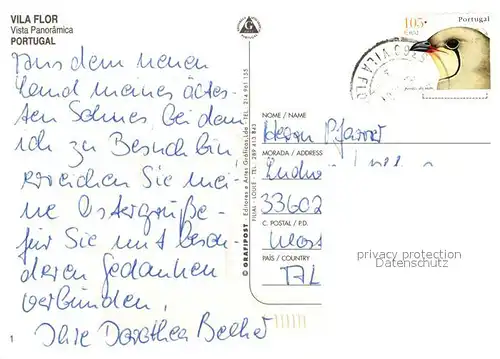 VILA FLOR
Vista Panorâmica
PORTUGAL
aus dem neuen
Land meines ältes-
ten Sohnes, bei dem
ich zu Besuch bin,
erreichen Sie mei-
ne Ostergrüße-
für Sie mit beson-
deren Gedanken
verbunden.
Ihre Dorothea Becker
1
© GRAFIPOST - Editores e Artes Gráficas, Lda - TEL. 214 961 155
FILIAL - LOULÉ - TEL. 289 413 843
105.
Portugal
VILA FLO
NOME / NAME
Herrn Pfarrer
MORADA / ADDRESS
33602
C. POSTAL / P.D.
PAÍS / COUNTRY
privacy protection
Datenschutz